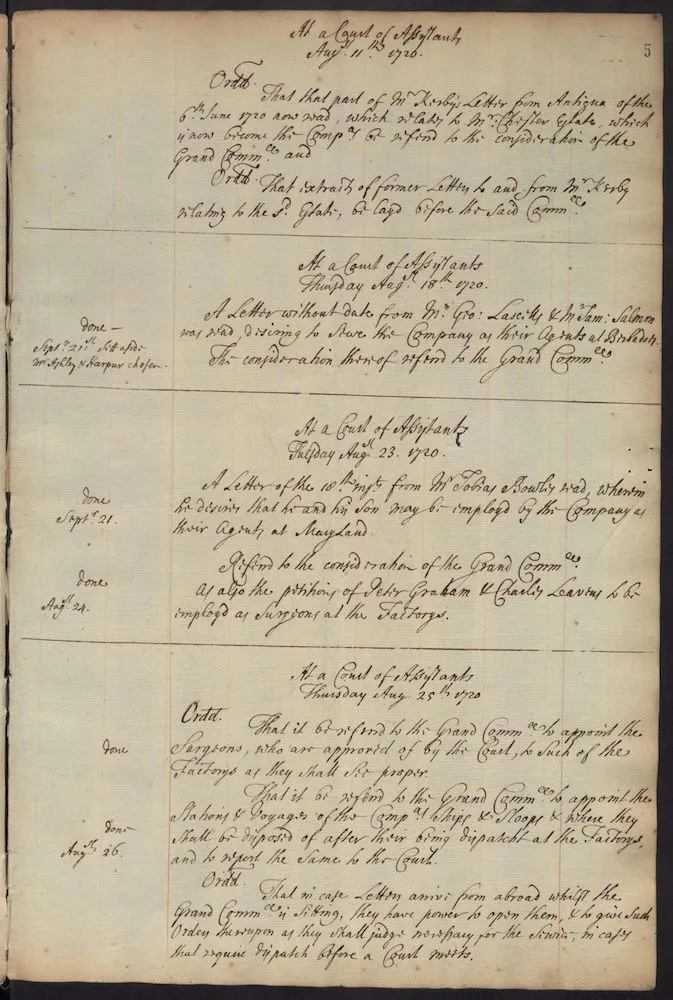 5
At a Court of Assistants
Augst. 11th. 1720.
Ordd.
That that part of Mr Kerby's Letter from Antigua of the
6th June 1720 now read, which relates to Mr. Chester Estate, which
is now become the Compas. be referd to the consideration of the
Grand Commee. and
Ordd. That extracts of former Letters to and from Mr Kerby
relating to the sd. Estate, be layd before the said Commee.
At a Court of Assistants
Thursday Augst. 18th 1720.
A Letter without date from Mr. Geo: Lascells & Mr Jam: Salmon
was read, desiring to serve the Company as their Agents at Barbados.
The consideration thereof referd to the Grand Commee.
done —
Septr. 21st. Sett aside
Mr Ashley & Harpur chosen.
At a Court of Assistants
Tuesday Augst. 23. 1720.
A Letter of the 18th inst. from Mr Tobias Bowles read, wherein
he desires that he and his Son may be employd by the Company as
their Agents at MaryLand.
done
Septr. 21.
Referd to the consideration of the Grand Commee.
As also the petitions of Peter Graham & Charles Leavens to be
employd as Surgeons at the Factorys.
done
Augst. 24.
At a Court of Assistants
Thursday Aug 25th 1720
Ordd.
That it be referd to the Grand Commee to appoint the
Surgeons, who are approved of by the Court, to such of the
Factorys as they shall see proper.
done
That it be referd to the Grand Commee. to appoint the
Stations & Voyages of the Compas Ships & Sloops & where they
shall be disposed of after their being dispatcht at the Factorys,
and to report the same to the Court.
done
Augst. 26.
Ordd.
That in case Letters arrive from abroad whilst the
Grand Commee is sitting, they have power to open them, & to give such
Orders thereupon as they shall judge necessary for the Service, in cases
that require dispatch before a Court meets.